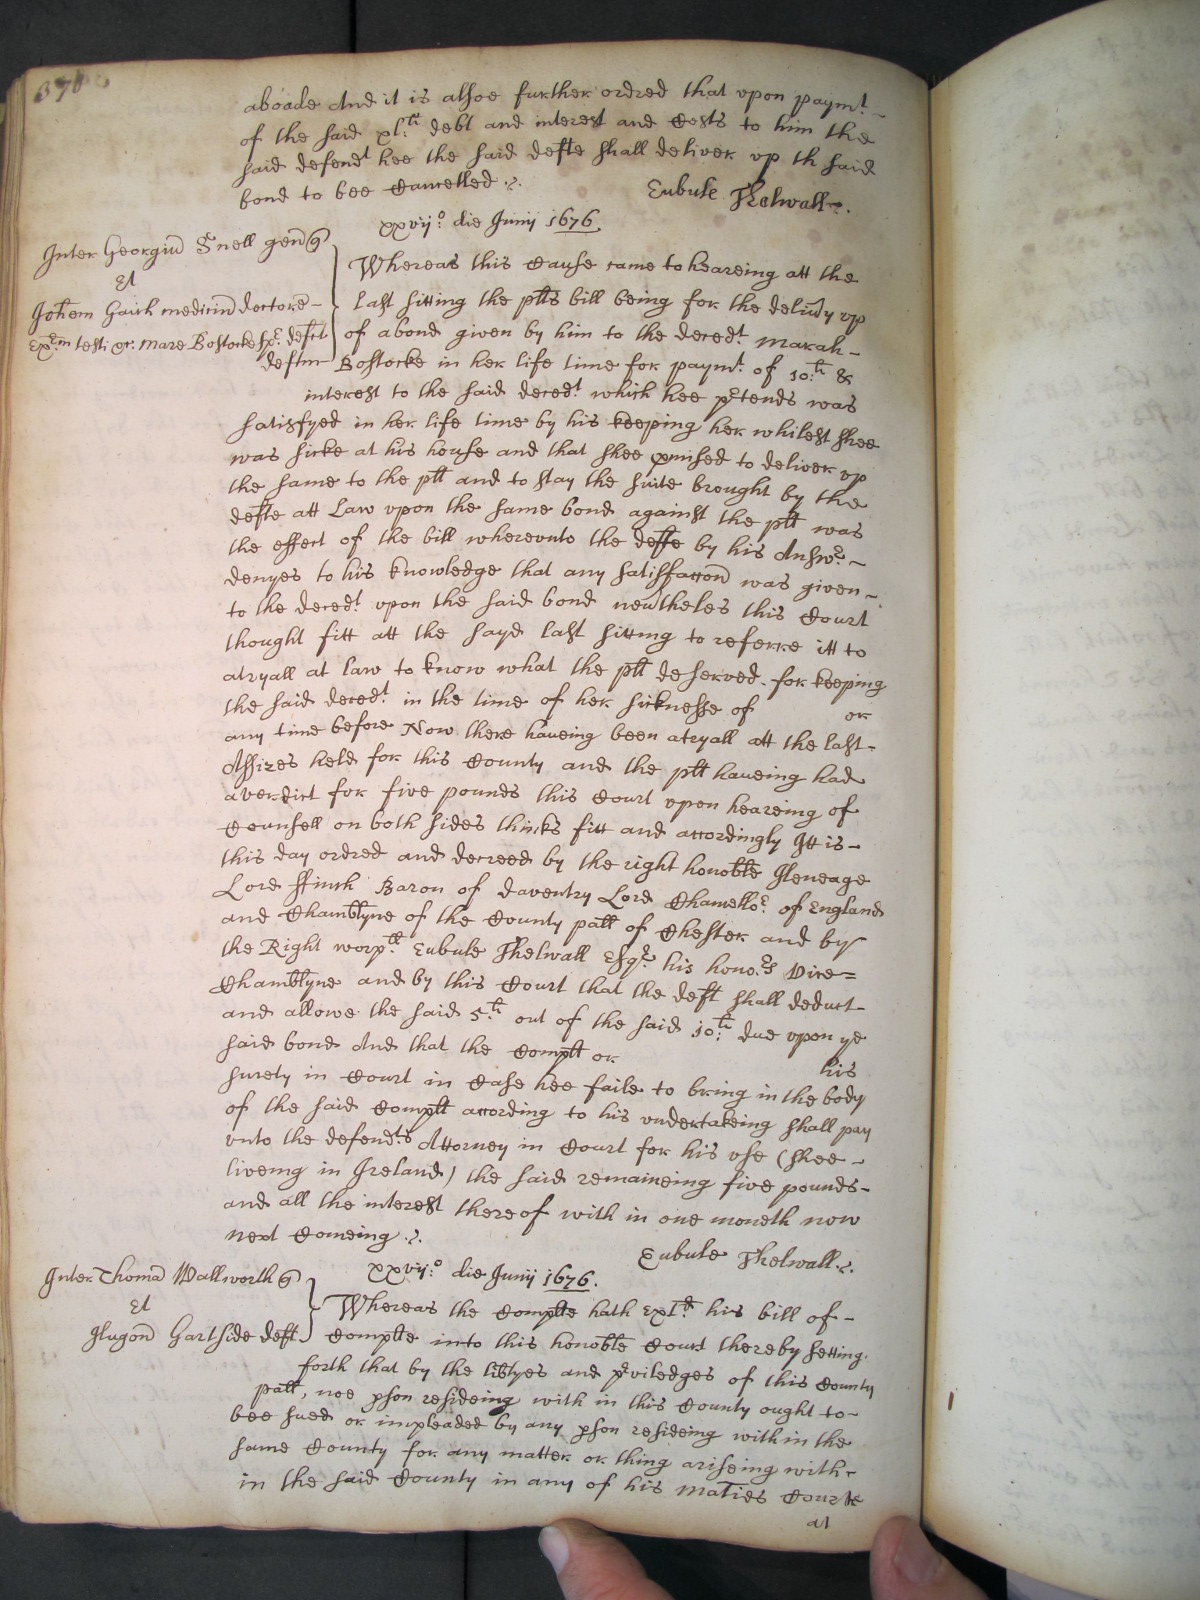 370
aboade And it is alsoe further ordred that vpon paymt
of the said xl.li debt and interest and Costs to him the
said defendt hee the said defte shall deliver vp th said
bond to bee Cancelled.
Eubule Thelwall.
xxvijo. die Junij 1676.
Inter Georgiu Snell gen q
Et
Johem Gairk medicin doctore
Ex.m testi vr. Mare Bostocke Sp. defct
deftm
Whereas this Cause came to heareing att the
last sitting the plts bill being for the deliu'y vp
of abond given by him to the decedt. Marah
Bostocke in her life time for paymt. of 10.li &
interest to the said decedt. which hee p'tends was
satisfyed in her life time by his keeping her whilest shee
was sicke at his house and that shee pmised to deliver vp
the same to the plt and to stay the suite brought by the
defte att Law vpon the same bond against the plt was
the effect of the bill wherevnto the defte by his Answr.
denyes to his knowledge that any satisfaccon was given
to the decedt. vpon the said bond neu'theles this Court
thought fitt att the sayd last sitting to referre itt to
atryall at law to know what the plt deserved for keeping
the said decedt. in the time of her sicknesse of or
any time before Now there haueing been atryall att the last
Assizes held for this County and the plt haueing had
averdict for five pounds this Court vpon heareing of
Counsell on both sides thincks fitt and accordingly Itt is
this day ordred and decreed by the right honoble Heneage
Lord ffinch Baron of Daventry Lord Chancellor. of England
and Chamblyne of the County palt of Chester and by
the Right worpll. Eubule Thelwall Esqr. his honors Vice=
Chamblyne and by this Court that the deft shall deduct
and allowe the said 5.li out of the said 10.li due vpon ye
said bond And that the Complt or his
surety in Court in Case hee faile to bring in the body
of the said Complt according to his vndertakeing shall pay
vnto the defendts Attorney in Court for his vse (shee
liveing in Ireland) the said remaineing five pounds
and all the interest thereof with in one moneth now
next Comeing.
Eubule Thelwall.
xxvijo. die Junij 1676.
Inter Thoma Wallworth q
Et
Hugon Gartside deft.
Whereas the Complte hath Exted his bill of
Complte into this honoble Court thereby setting
forth that by the libtyes and p'viledges of this County
palt, noe pson resideing with in this County ought to
bee sued or impleaded by any pson resideing within the
same County for any matter or thing ariseing with
in the said County in any of his Maties Courts
at